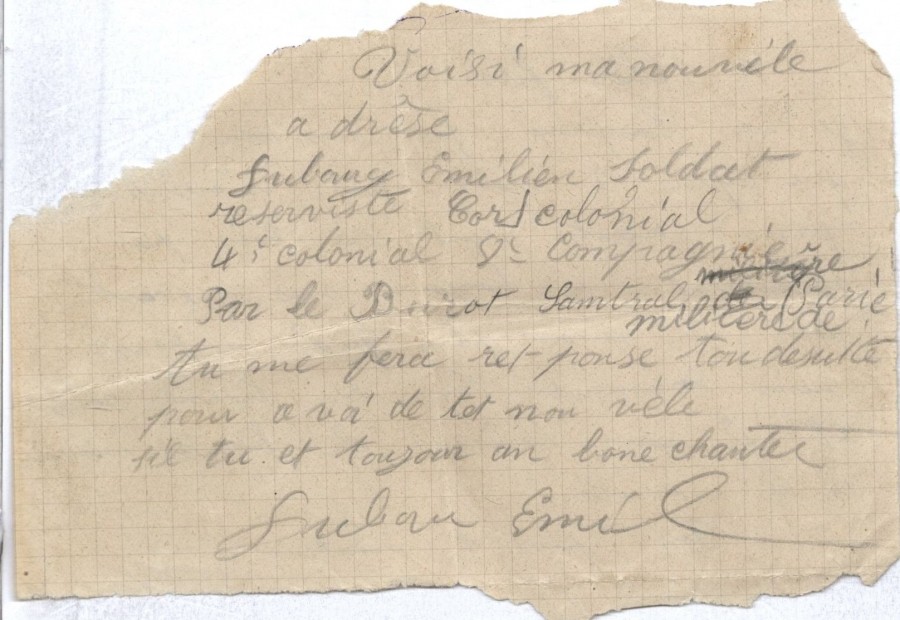 Voisi ma nouvéle
a drêse
Emilien Soldat
reserviste Cors colonial
4e colonial 9e Compagnie
Par le Burot Samtral Parie
militère de
tu me fera res ponse tou desuite
pour a voi de tes nou vèle
si tu et toujour an bone chantée
Emil